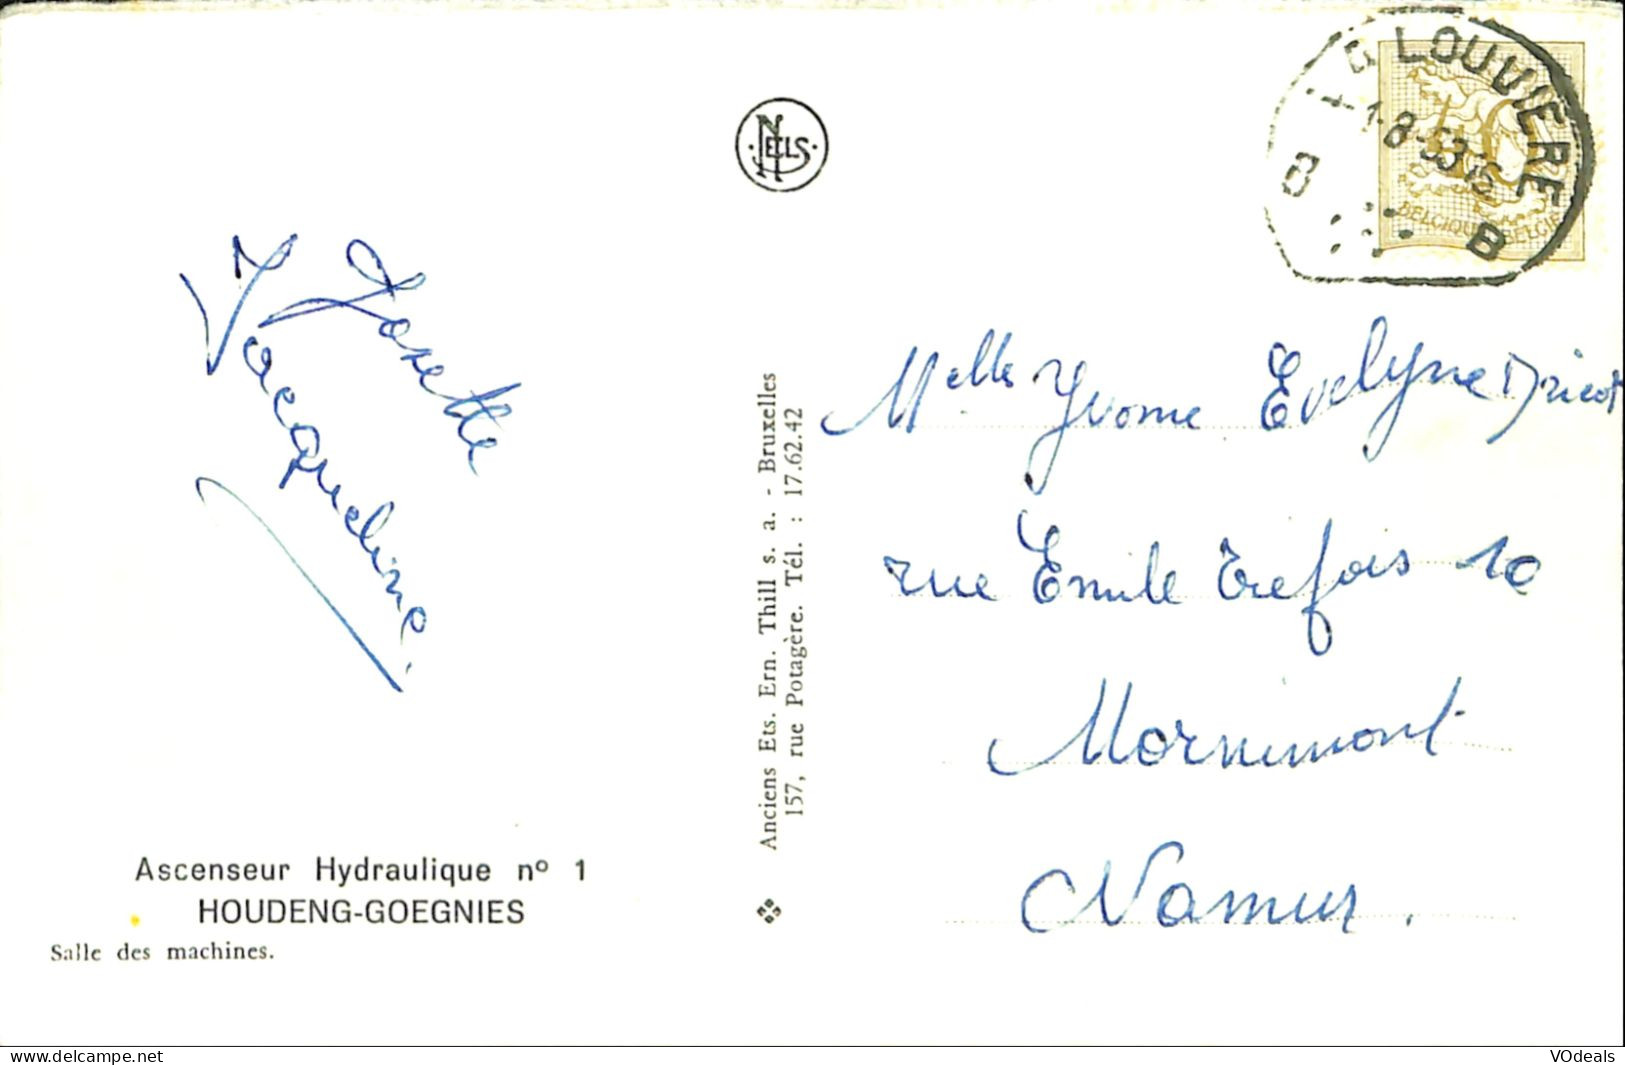 NELS
LA LOUVIERE
1-8-53
B B
BELGIQUE BELGIE
Josette
Jacqueline.
Anciens Ets. Ern. Thill s. a. - Bruxelles
157, rue Potagère. Tél. : 17.62.42
Melles Yvonne Evelyne Dricot
rue Emile Trefois 10
Mornimont
Namur.
Ascenseur Hydraulique nº 1
HOUDENG-GOEGNIES
Salle des machines.
www.delcampe.net
VOdeals